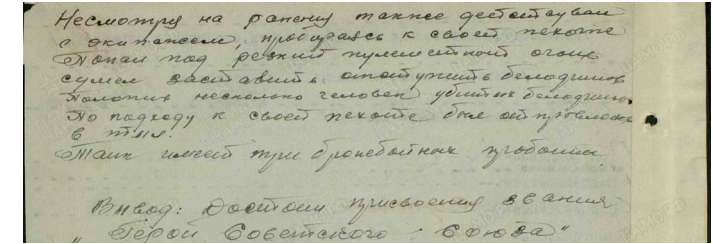 Несмотря на ранение также действовал
с экипажем, пробираясь к своей пехоте
Попав под резкий пулеметный огонь
сумел заставить отступить белофинов
положив несколько человек убитых белофинов
По подходу к своей пехоте был отправлен
в тыл.
Танк имеет три бронебойных пробоины
Вывод: Достоин присвоения звания
"Герой Советского Союза"